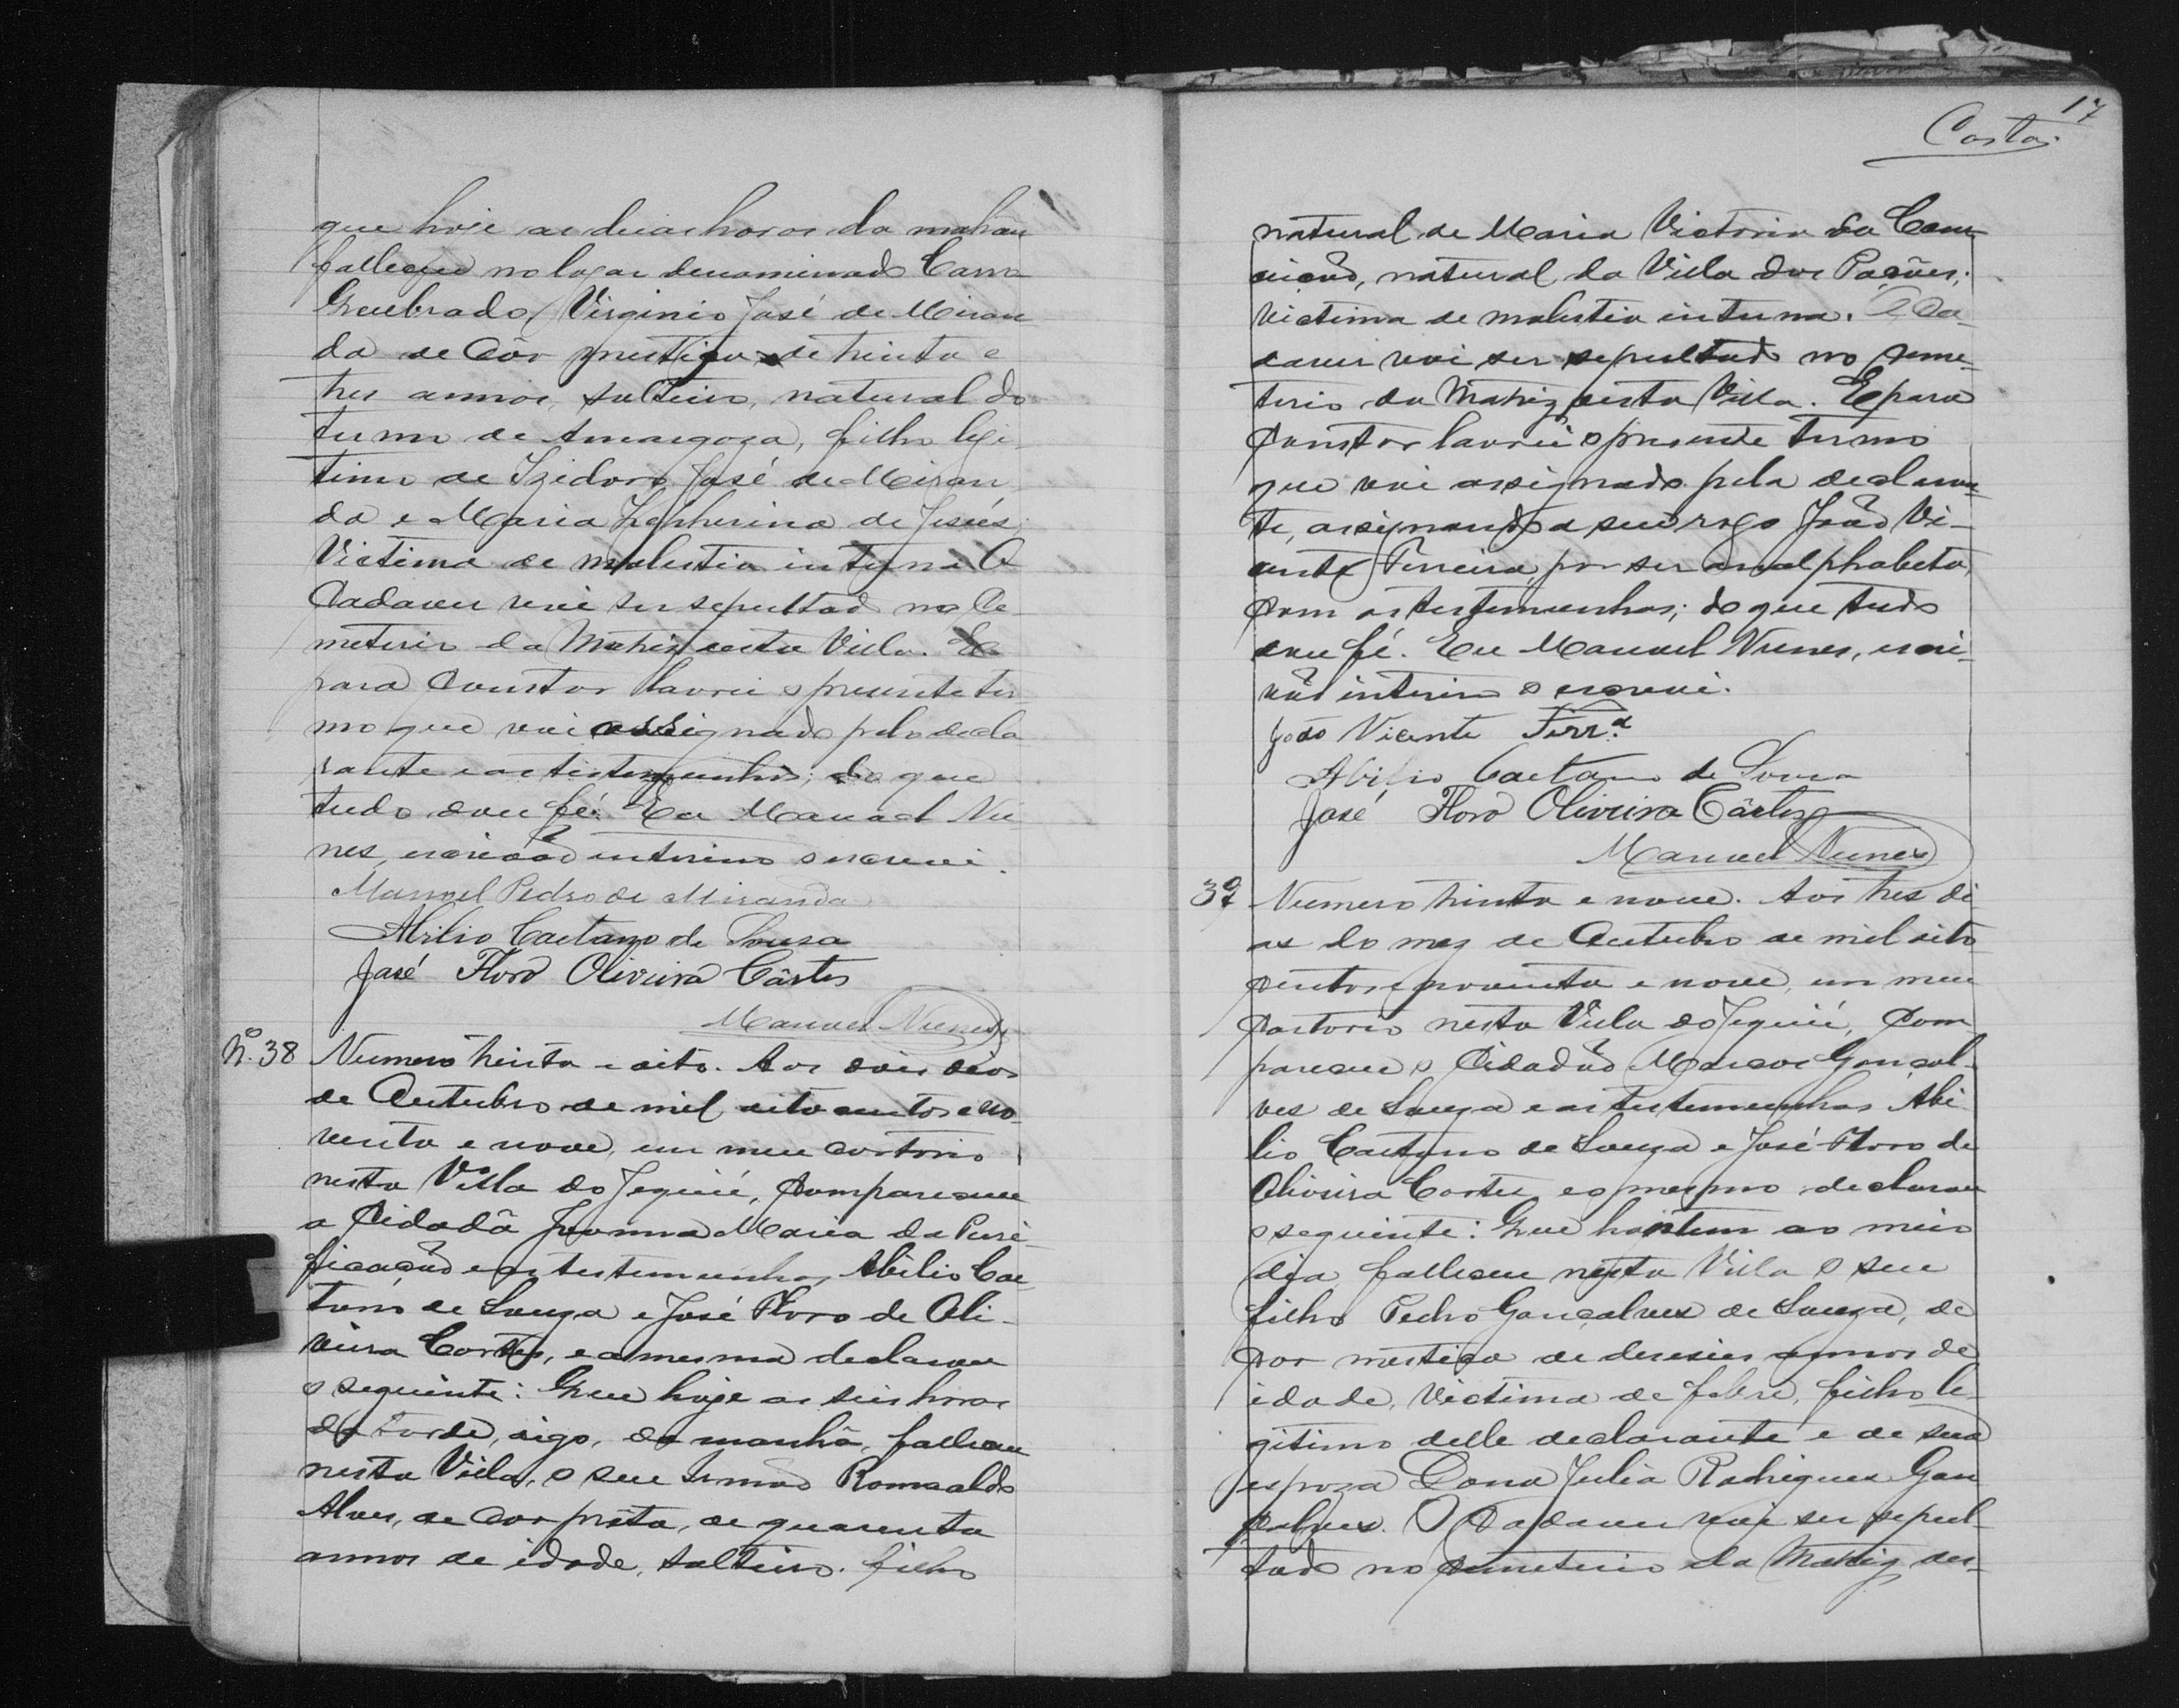 que hoje as duas horas da mahãn
falleceu no lugar denominado Carro
Quebrado, Virginio José de Miran
da de Côr mestiça de trinta e
tres annos, solteiro, natural do
termo de Amargoza, filho legi
timo de Izidoro José de Miran
da e Maria Zepherina de Jesús
Victima de molestia interna O
Cadaver vai ser sepultado no Ce
meterio da Matriz desta Villa. E
para Constar lavrei o presente ter
mo que vai assignado pelo decla
rante e as testemunhas; do que
tudo dou fé. Eu Manoel Nu
nes, escrivão interino o escrevi.
Manoel Pedro de Miranda
Abilio Caetano de Sousa
José Floro Oliveira Côrtes
Manuel Nunes
Nº. 38 Numero trinta e oito. Aos dois dias
de Outubro de mil oito centos e no
venta e nove, em meu cartorio
nesta Villa do Jequié, Compareceu
a Cidadã Joanna Maria da Puri
ficacão e as testemunhas Abilio Cae
tano de Souza e José Floro de Oli-
veira Cortes, e a mesma declarou
o seguinte: Que hoje as seis horas
da tarde, digo, da manhã, falleceu
nesta Villa, o seu Irmão Romualdo
Alves, de cor prêta, de quarenta
annos de idade, solteiro. filho
17
Costa.
natural de Maria Victoria da Con
ceicão, natural da Villa dos Poções,
victima de molestia interna. O Ca-
daver vai ser sepultado no Ceme-
terio da Matriz desta Villa. E para
Constar lavrei o presente termo
que vai assignado pela declaran
te, assignando a seu rogo João Vi-
cente Ferreira, por ser analphabeta,
Com as testemunhas; do que tudo
dou fé. Eu Manuel Nunes, escri-
vão interino o escrevi.
João Vicente Ferrª
Abilio Caetano de Sousa
José Floro Oliveira Côrtes
Manuel Nunes
39 Numero trinta e nove. Aos tres di
as do mez de Outubro de mil oito
centos e noventa e nove, em meu
Cartorio nesta Villa do Jequié, Com
pareceu o Cidadão Marcos Goncal-
ves de Souza e as testemunhas Abi
lio Caetano de Souza e José Floro de
Oliveira Cortes, e o mesmo declarou
o seguinte: Que hontem ao meio
dia falleceu nesta Villa o seu
filho Pedro Gonçalves de Souza, de
Cor mestica de deseseis annos de
idade, victima de febre, filho le-
gitimo delle declarante e de sua
espoza Dona Julia Rodrigues Gon
çalves. O Cadaver vai ser sepul-
tado no Cemeterio da Matriz des-